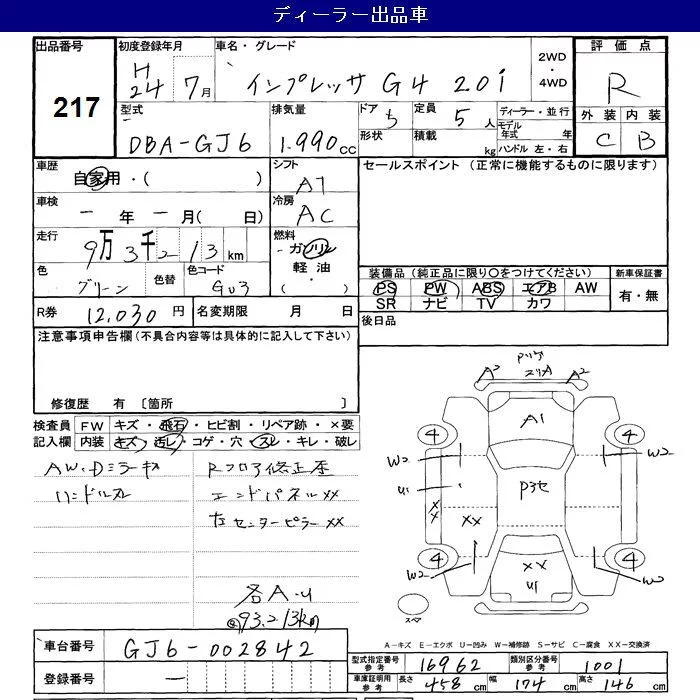 ディーラー出品車
出品番号 217
初度登録年月 H24 7月
車名・グレード インプレッサ G4 2.0i
2WD・4WD
評価点 R
外装 C 内装 B
型式 DBA-GJ6
排気量 1.990cc
ドア 5 形状
定員 5人 積載 kg
ディーラー・並行
モデル年式 年
ハンドル 左・右
車歴 自家用・( )
シフト AT
セールスポイント (正常に機能するものに限ります)
車検 一年一月( 日)
冷房 AC
走行 9万3千213km
燃料 ガソリン 軽油・( )
色 グリーン 色替 色コード GU3
装備品 (純正品に限り○をつけてください)
新車保証書
PS PW ABS エアB AW
有・無
SR ナビ TV カワ
R券 12,030円 名変期限 月 日
後日品
注意事項申告欄(不具合内容等は具体的に記入して下さい)
修復歴 有 [箇所 ]
検査員記入欄
FW キズ・飛石・ヒビ割・リペア跡・×要
内装 キズ・汚レ・コゲ・穴・スレ・キレ・破レ
AW・Dミラーキズ
ハンドルスレ
Rフロア修正歴
エンドパネルXX
左センターピラーXX
各A・U
走93.213km
A3 A2
A1
4 4
W2 W2
U1
P3セ
XX
XX
4 4
XX
U1
W2 W2
スペア
A-キズ E-エクボ U-凹み W-補修跡 S-サビ C-腐食 XX-交換済
車台番号 GJ6-002842
登録番号 一
型式指定番号 参考 16962
類別区分番号 参考 1001
車庫証明用 参考 長さ 458cm 幅 174cm 高さ 146cm